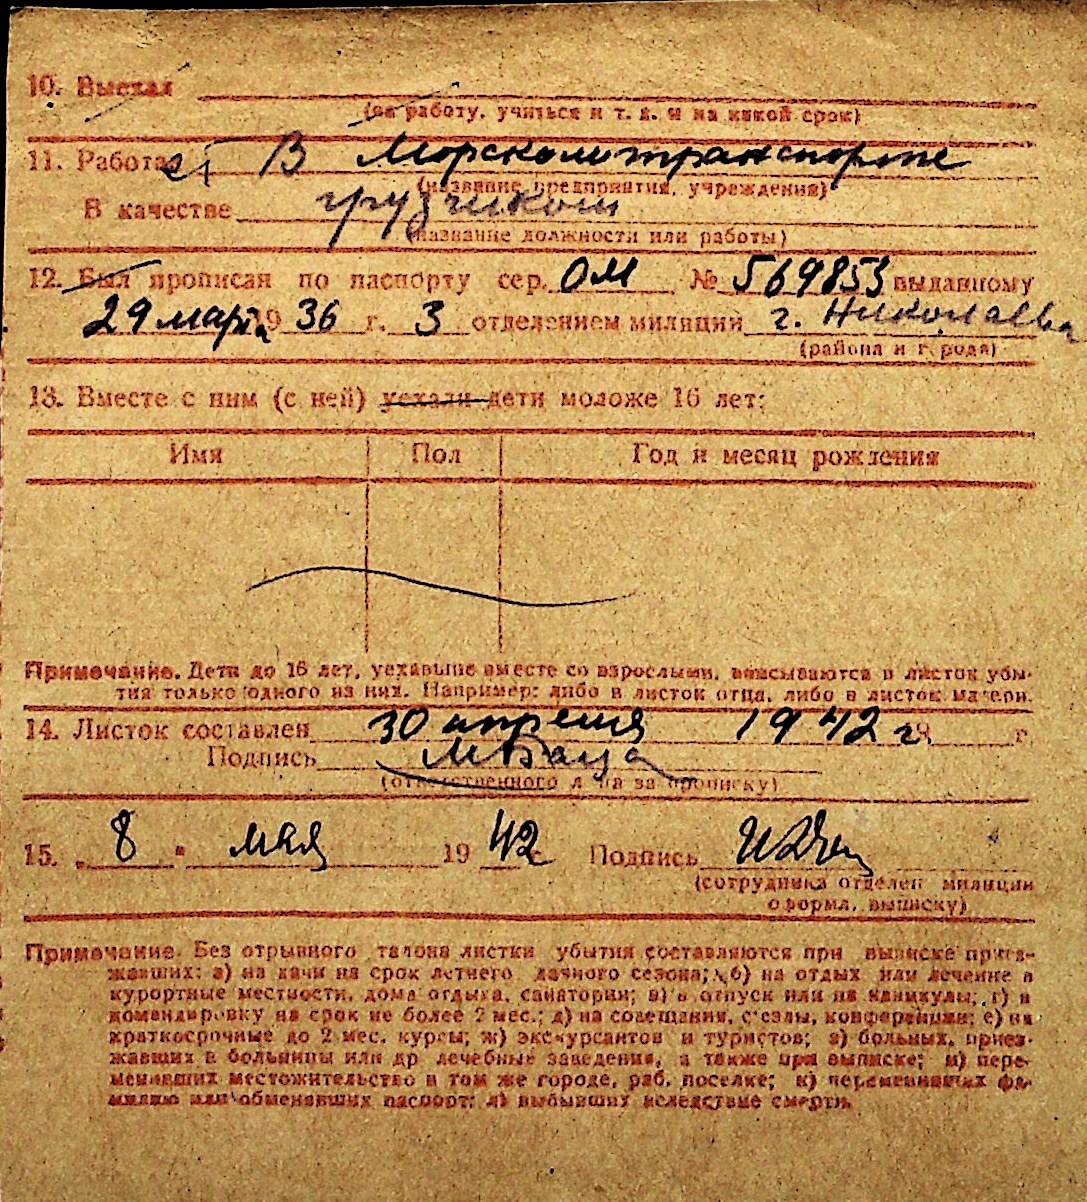 10. Выехал
(на работу, учиться и т. д. и на какой срок)
11. Работает В Морсколитранспорте
(название предприятия, учреждения)
В качестве грузчиком
(название должности или работы)
12. Был прописан по паспорту сер. ОМ № 569853 выданному
29 марта 1936 г. 3 отделением милиции г. Николаева
(района и города)
13. Вместе с ним (с ней) уехали дети моложе 16 лет:
Имя Пол Год и месяц рождения
Примечание. Дети до 16 лет, уехавшие вместе со взрослыми, вписываются в листок убы-
тия только одного из них. Например: либо в листок отца, либо в листок матери.
14. Листок составлен 30 апреля 1942 г. г.
Подпись
(ответственного л на за прописку)
15. „ 8 " мая 19 42 г. Подпись
(сотрудника отделен милиции
оформл. выписку)
Примечание. Без отрывного талона листки убытия составляются при выписке приез-
жавших: а) на дачи на срок летнего дачного сезона; б) на отдых или лечение в
курортные местности, дома отдыха, санатории; в) в отпуск или на каникулы; г) в
командировку на срок не более 2 мес.; д) на совещания, съезды, конференции; е) на
краткосрочные до 2 мес. курсы; ж) экскурсантов и туристов; з) больных, приез-
жавших в больницы или др лечебные заведения, а также при выписке; и) пере-
менивших местожительство в том же городе, раб. поселке; к) переменивших фа-
милию или обменявших паспорт; л) выбывших вследствие смерти.